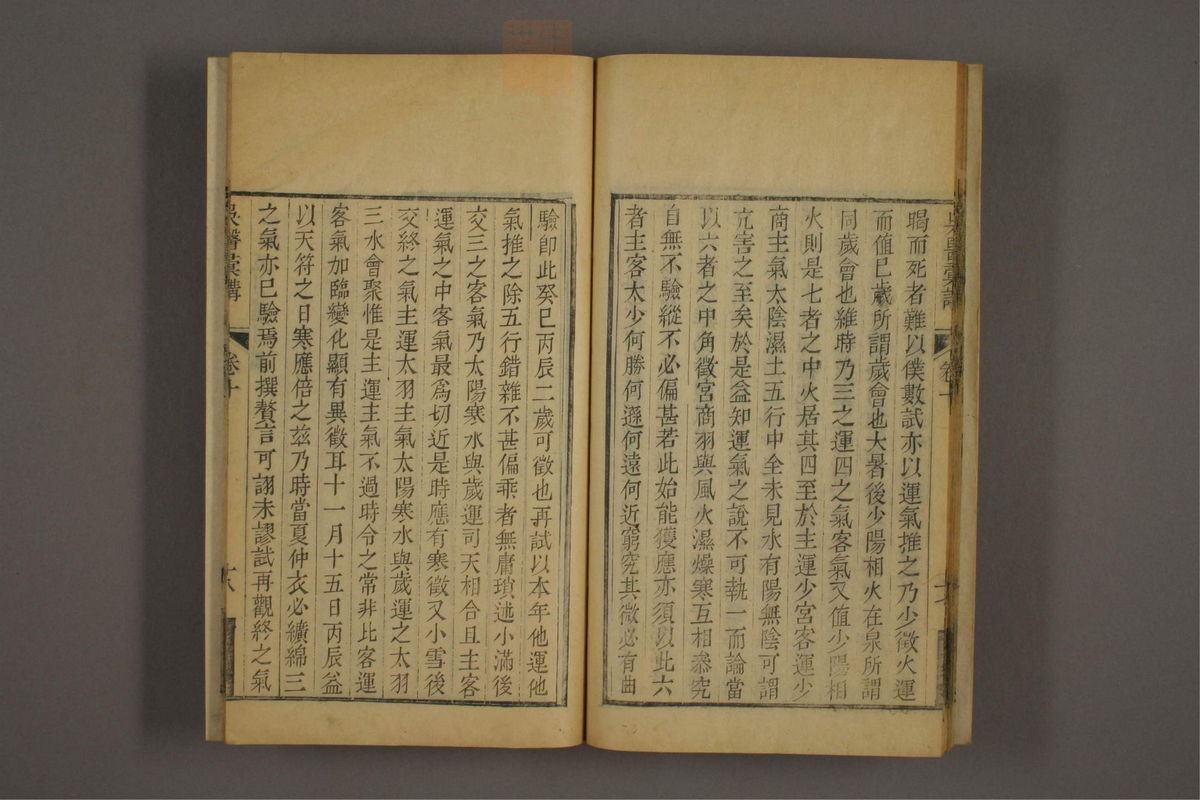 暍而死者難以僕數試亦以運氣推之乃少徵火運
而值巳歲所謂歲會也大暑後少陽相火在泉所謂
同歲會也維時乃三之運四之氣客氣又值少陽相
火則是七者之中火居其四至於主運少宮客運少
商主氣太陰濕土五行中全未見水有陽無陰可謂
亢害之至矣於是益知運氣之說不可執一而論當
以六者之中角徵宮商羽與風火濕燥寒互相叅究
自無不驗縱不必偏甚若此始能獲應亦須以此六
者主客太少何勝何遜何遠何近窮究其微必有曲
吳醫彙講
卷十
驗卽此癸巳丙辰二歲可徵也再試以本年他運他
氣推之除五行錯雜不甚偏乖者無庸瑣述小滿後
交三之客氣乃太陽寒水與歲運司天相合且主客
運氣之中客氣最爲切近是時應有寒徵又小雪後
交終之氣主運太羽主氣太陽寒水與歲運之太羽
三水會聚惟是主運主氣不過時令之常非比客運
客氣加臨變化顯有異徵耳十一月十五日丙辰益
以天符之日寒應倍之玆乃時當夏仲衣必纊綿三
之氣亦已驗焉前撰贅言可詡未謬試再觀終之氣
吳醫彙講
卷十
十八